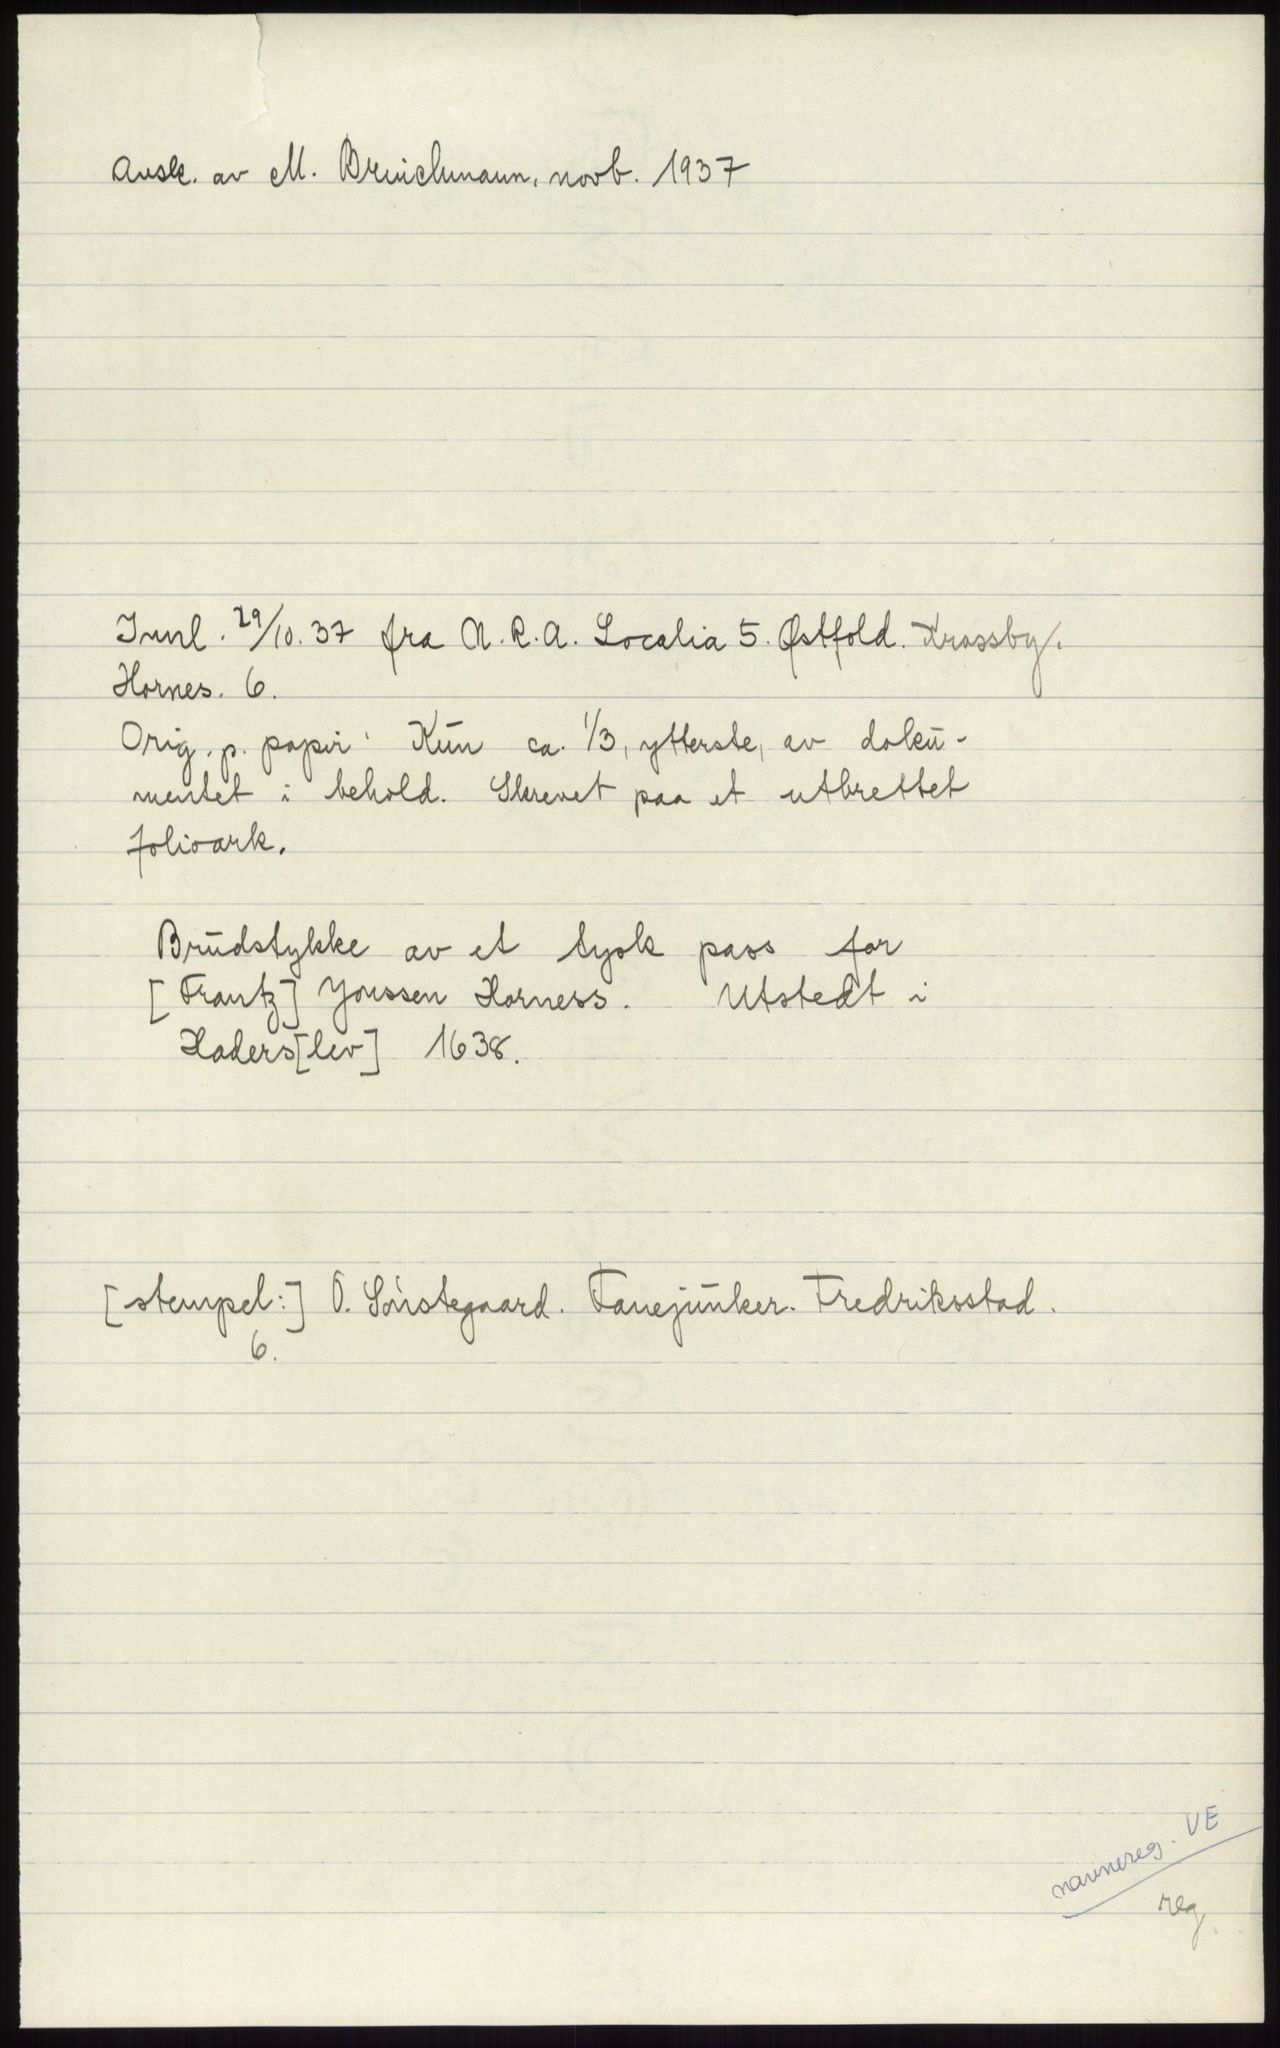 Avsk. av M. Brinchmann, novb. 1937
Innl. 29/10. 37 fra N. R. A. Localia 5. Østfold. Krossby.
Hornes. 6.
Orig. p. papir. Kun ca. 1/3, ytterste, av doku-
mentet i behold. Skrevet paa et utbrettet
folioark.
Brudstykke av et tysk pass for
[Frantz] Jonssen Horness. Utstedt i
Haders[lev] 1638.
[stempel:] O. Sønstegaard. Fanejunker. Fredriksstad.
6.
navnereg. VE
reg.